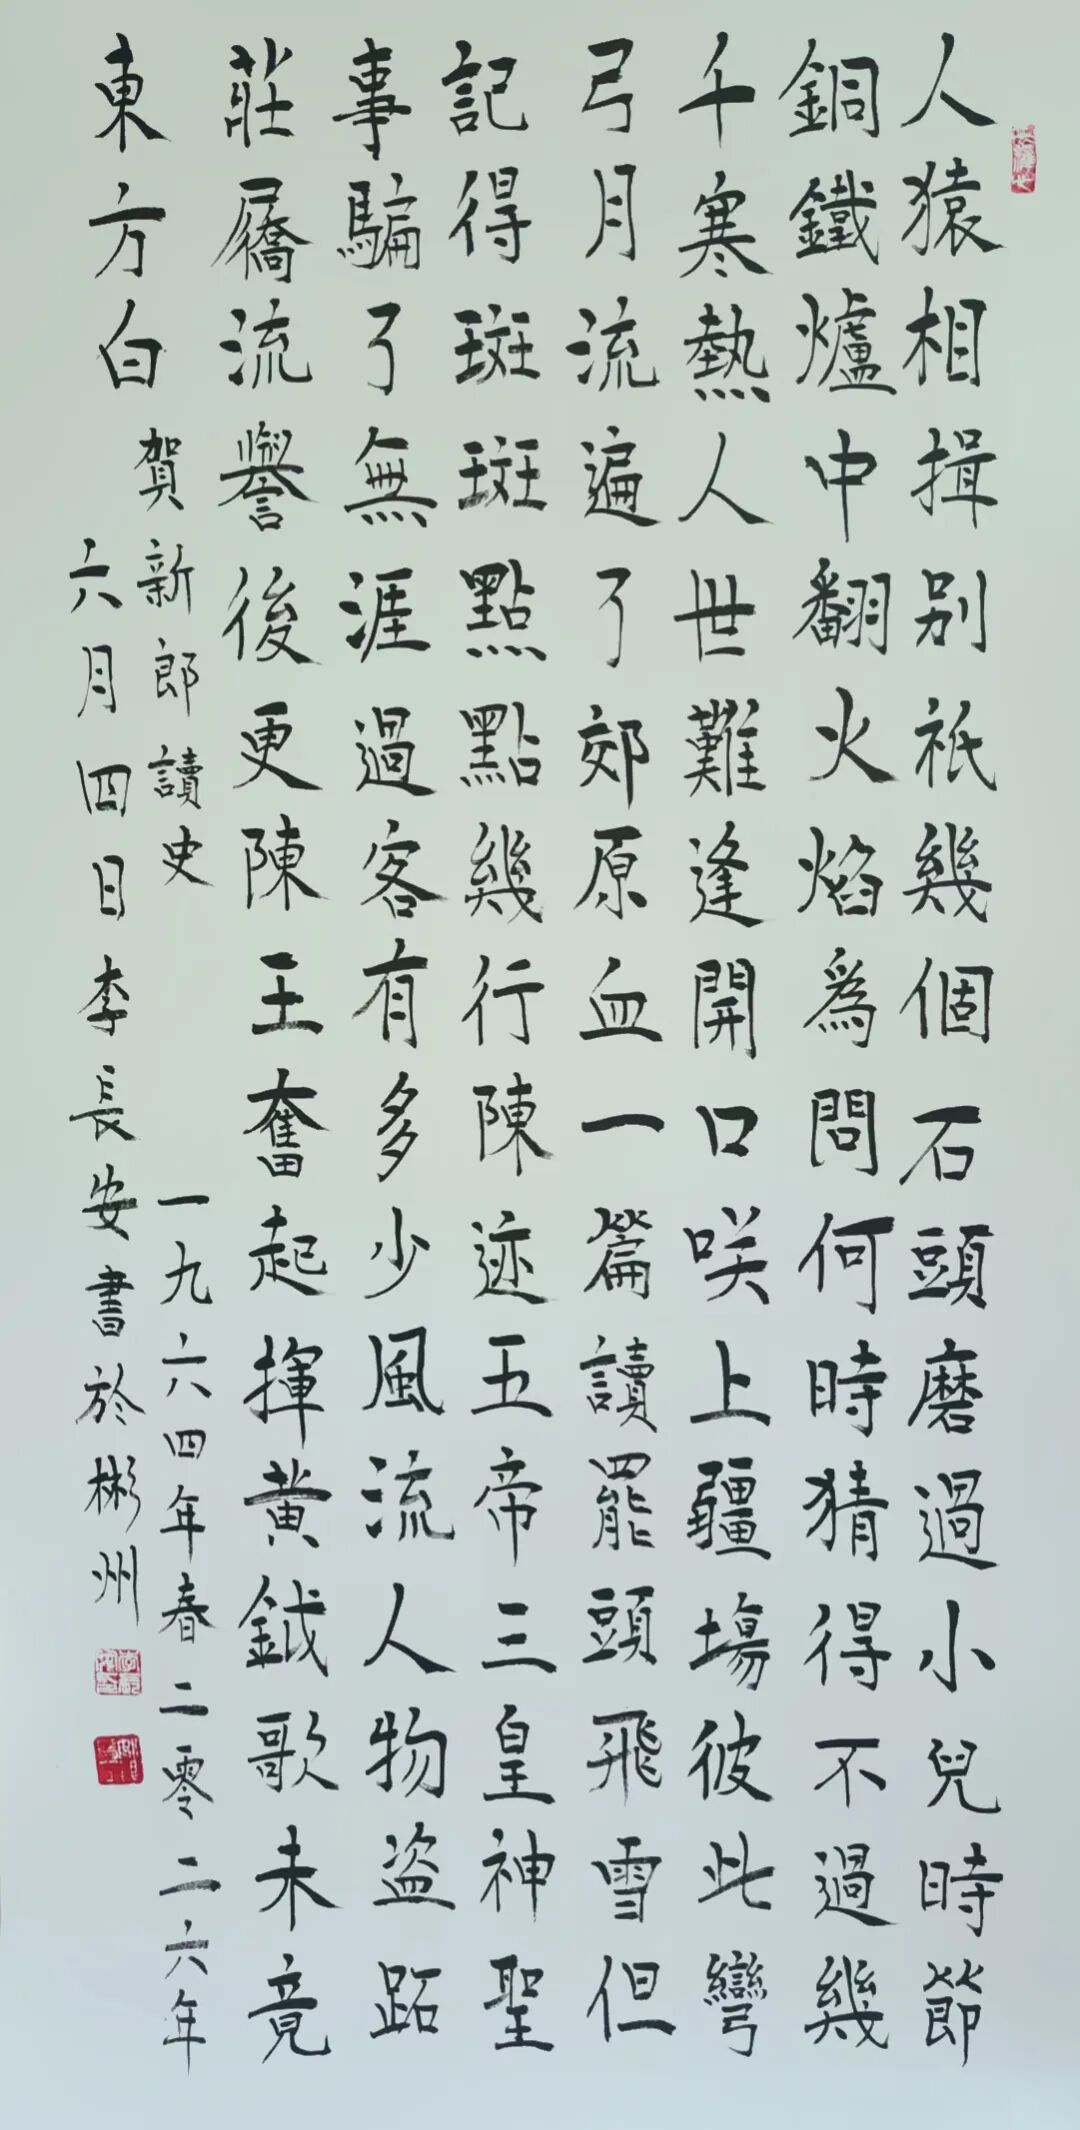 人猿相揖别祇幾個石頭磨過小兒時節
銅鐵爐中翻火焰爲問何時猜得不過幾
千寒熱人世難逢開口咲上疆場彼此彎
弓月流遍了郊原血一篇讀罷頭飛雪但
記得斑斑點點幾行陳迹五帝三皇神聖
事騙了無涯過客有多少風流人物盗跖
莊屩流譽後更陳王奮起揮黄鉞歌未竟
東方白
賀新郎讀史 一九六四年春二零二六年
六月四日李長安書於彬州